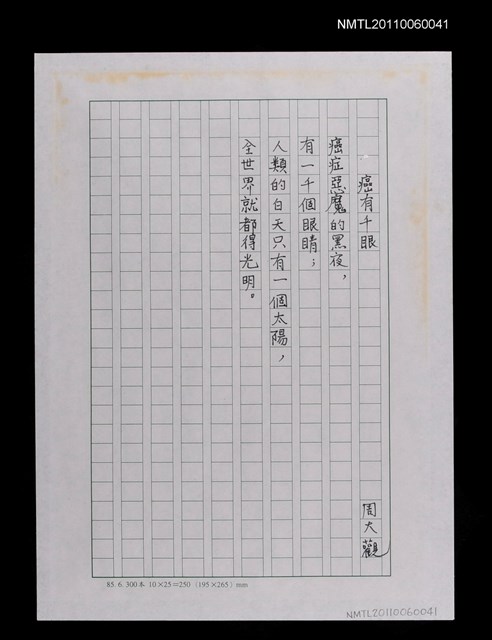 NMTL20110060041
癌有千眼
周大觀
癌症惡魔的黑夜，
有一千個眼睛；
人類的白天只有一個太陽，
全世界就都得光明。
85. 6. 300本 10×25＝250（195×265）mm
NMTL20110060041